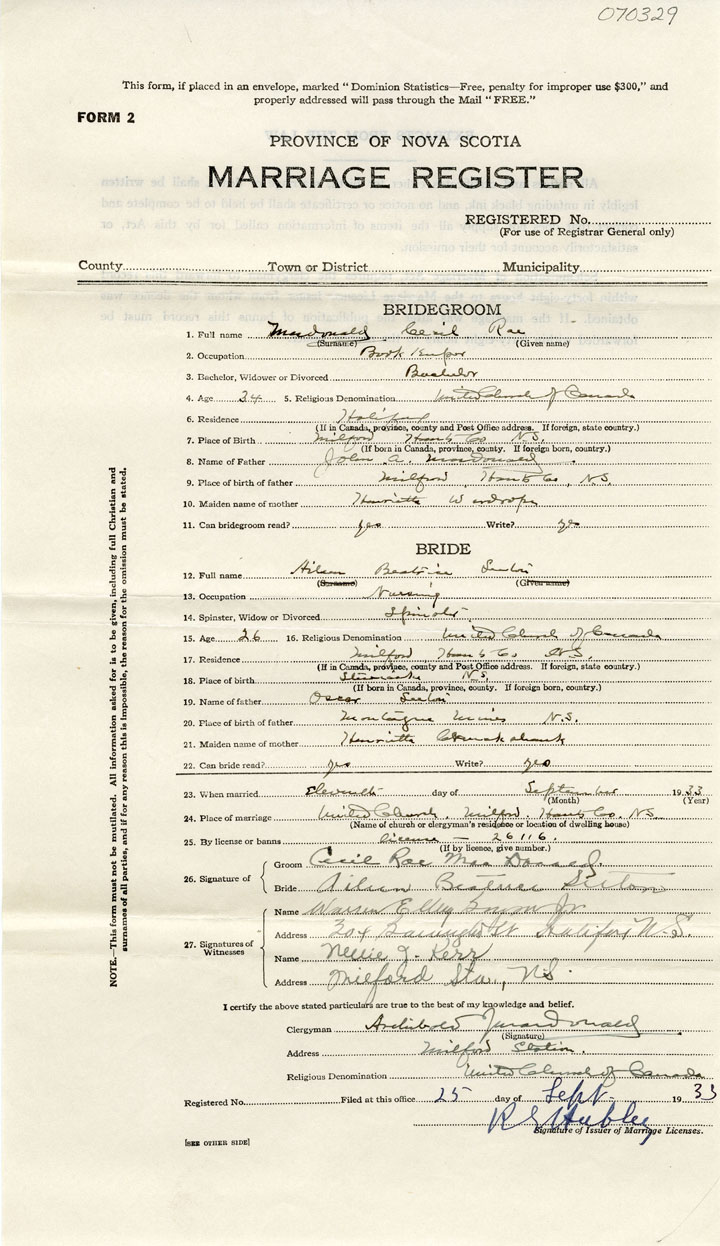 070329
This form, if placed in an envelope, marked "Dominion Statistics—Free, penalty for improper use $300," and
properly addressed will pass through the Mail "FREE."
FORM 2
PROVINCE OF NOVA SCOTIA
MARRIAGE REGISTER
REGISTERED No.
(For use of Registrar General only)
County Town or District Municipality
BRIDEGROOM
1. Full name Macdonald Cecil Rae
(Surname) (Given name)
2. Occupation Book Keeper
3. Bachelor, Widower or Divorced Bachelor
4. Age 34 5. Religious Denomination United Church of Canada
6. Residence Halifax
(If in Canada, province, county and Post Office address. If foreign, state country.)
7. Place of Birth Milford Hants Co N.S.
(If born in Canada, province, county. If foreign born, country.)
8. Name of Father John A. Macdonald
9. Place of birth of father Milford, Hants Co, N.S.
10. Maiden name of mother Henrietta Wardrope
11. Can bridegroom read? yes Write? yes
BRIDE
12. Full name Ailsen Beatrice Seeton
(Surname) (Given name)
13. Occupation Nursing
14. Spinster, Widow or Divorced Spinster
15. Age 26 16. Religious Denomination United Church of Canada
17. Residence Milford Hants Co N.S.
(If in Canada, province, county and Post Office address. If foreign, state country.)
18. Place of birth Stewiacke N.S.
(If born in Canada, province, county. If foreign born, country.)
19. Name of father Oscar Seeton
20. Place of birth of father Montague Mines N.S.
21. Maiden name of mother Henrietta
22. Can bride read? yes Write? yes
23. When married Eleventh day of September 1933
(Month) (Year)
24. Place of marriage United Church, Milford Hants Co. N.S.
(Name of church or clergyman's residence or location of dwelling house)
25. By license or banns License — 26116.
(If by licence, give number.)
26. Signature of
Groom Cecil Rae MacDonald
Bride Ailsen Beatrice Seeton
27. Signatures of Witnesses
Name Warren
Address 304 Barrington St Halifax N.S.
Name Nellie J. Kerr
Address Milford Sta., NS.
I certify the above stated particulars are true to the best of my knowledge and belief.
Clergyman Archibald
(Signature)
Address Milford Station.
Religious Denomination United Church of Canada
Registered No. Filed at this office 25 day of Sept. 1933
R S Hubley
Signature of Issuer of Marriage Licenses.
[SEE OTHER SIDE]
NOTE.—This form must not be mutilated. All information asked for is to be given, including full Christian and
surnames of all parties, and if for any reason this is impossible, the reason for the omission must be stated.